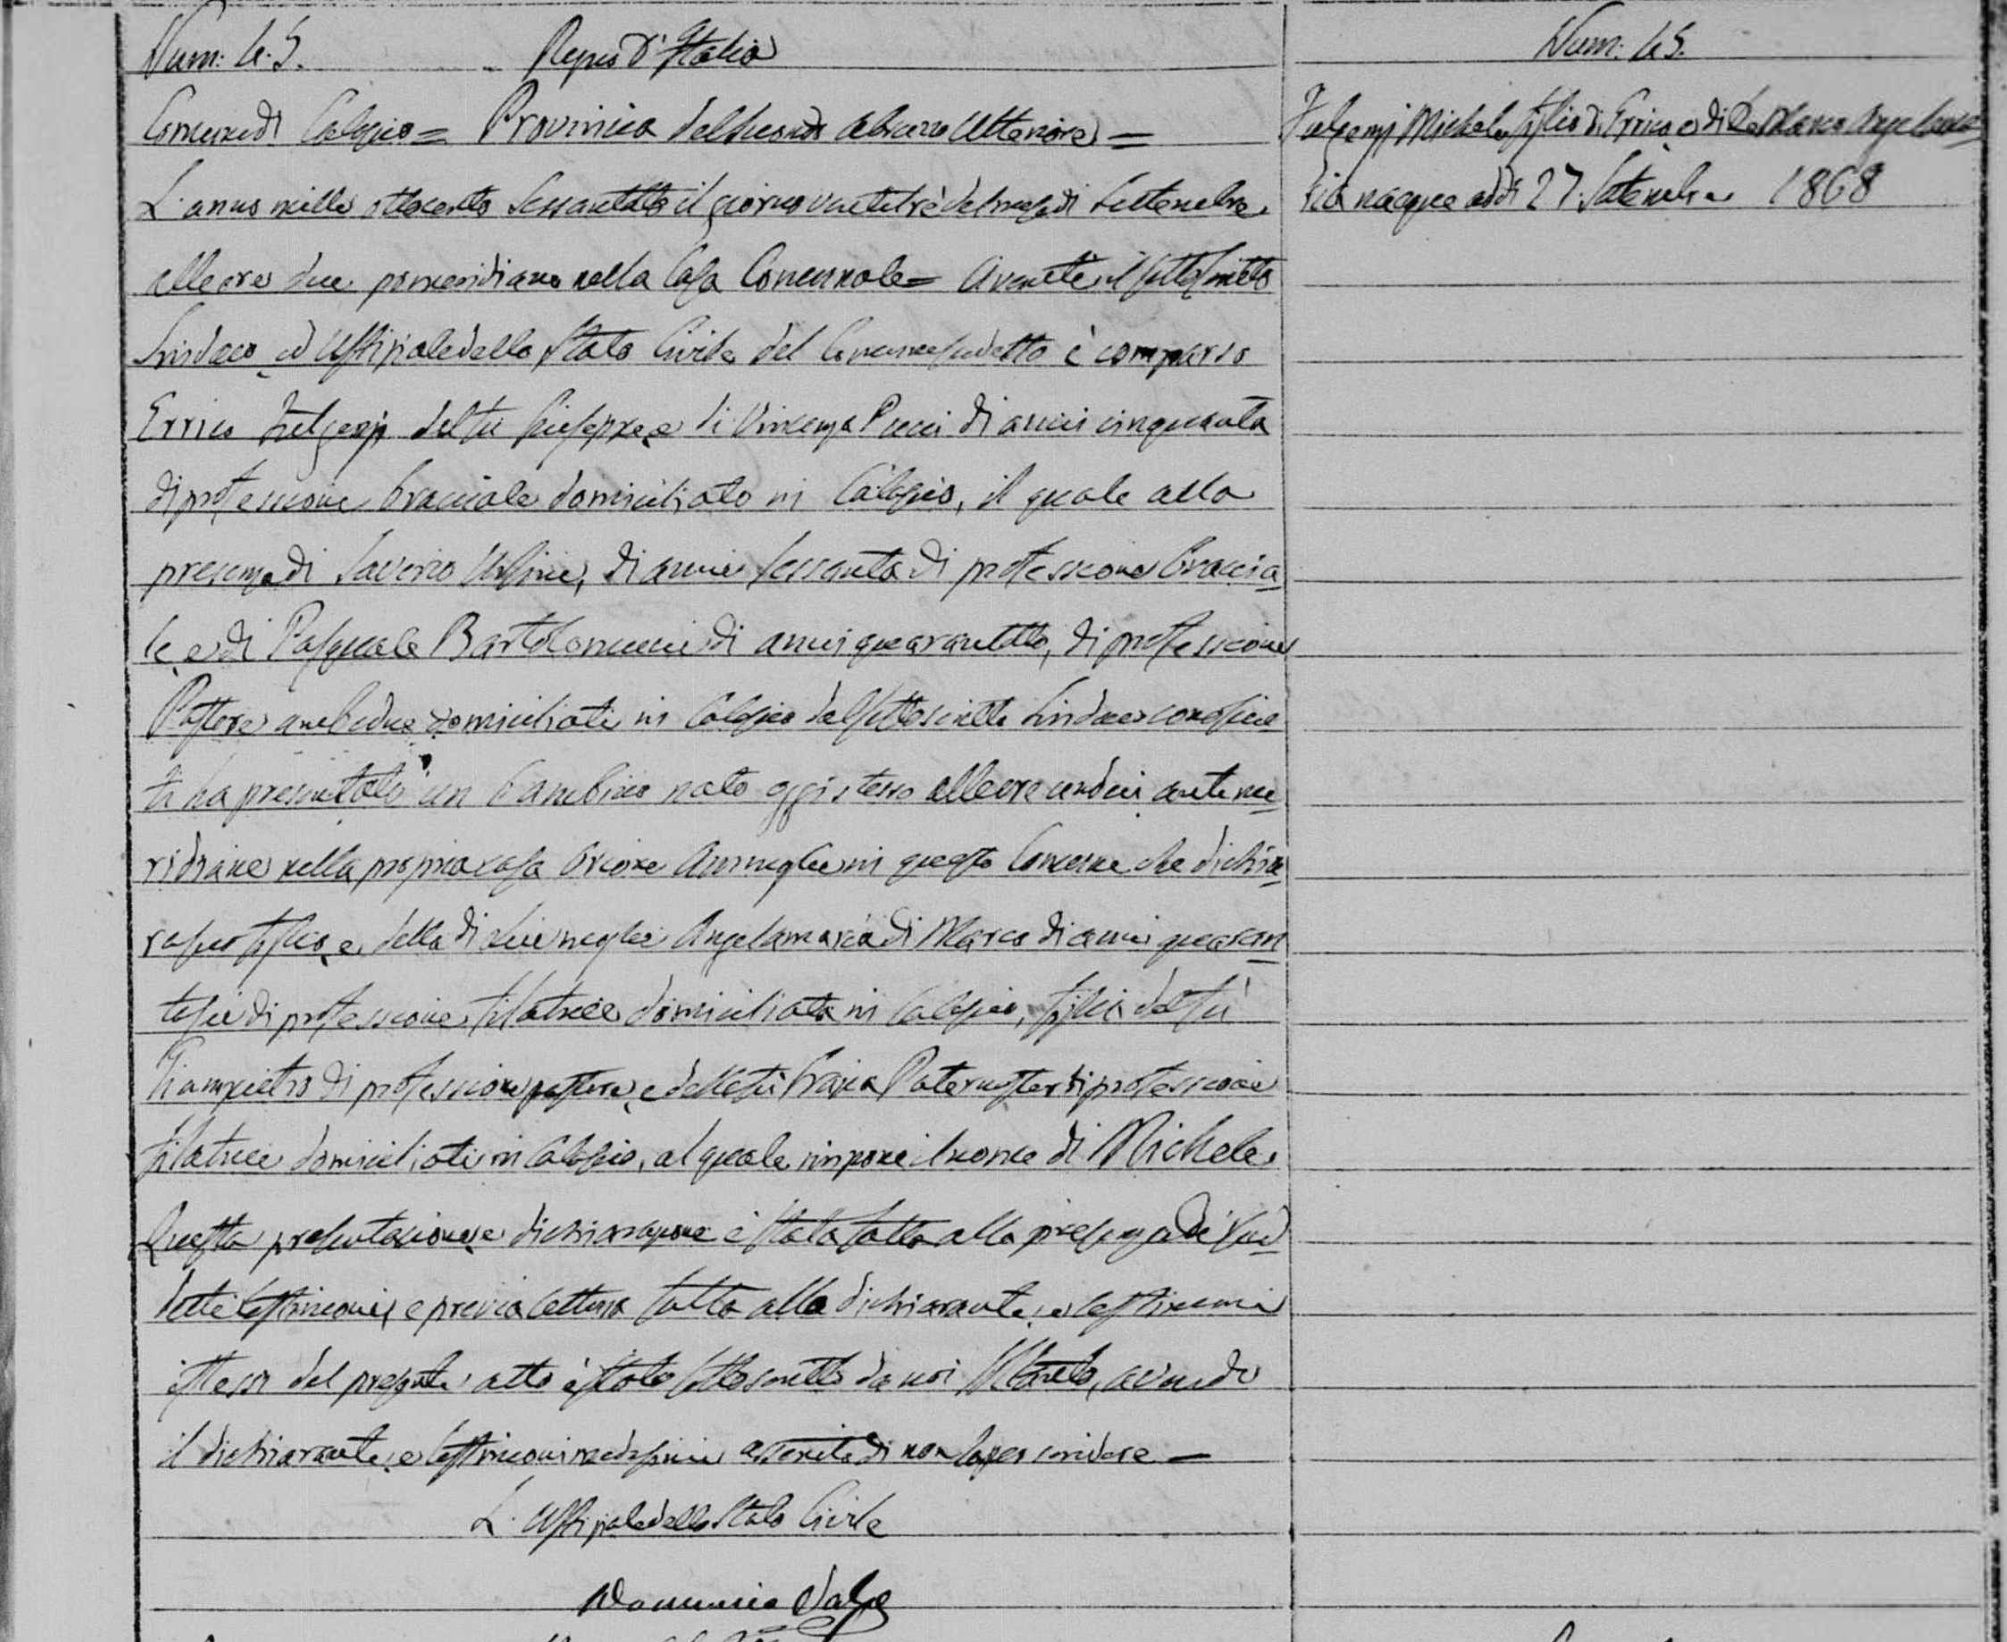 Num: 45. Regno d'Italia
Comune di Calascio = Provincia del secondo Abruzzo Ulteriore =
L'anno mille ottocento sessantotto il giorno ventitrè del mese di Settembre
alle ore due pomeridiane nella Casa Comunale = Avanti il sottoscritto
Sindaco ed Uffiziale dello Stato Civile del Comune sudetto è comparso
Errico Fulgenzj del fu Giuseppe e di Vincenza Pucci di anni cinquanta
di professione bracciale domiciliato in Calascio, il quale alla
presenza di Saverio di anni sessanta di professione braccia=
le e di Pasquale Bartolomucci di anni quarantotto, di professione
Pastore ambedue domiciliati in Calascio dal sottoscritto Sindaco conosciu=
ti ha presentato un bambino nato oggi stesso alle ore undici anteme=
ridiane nella propria casa in questo Comune che dichia=
ra suo figlio e della di lui moglie Angelamaria di Marco di anni quaran=
tasei di professione filatrice domiciliata in Calascio, figlia del fu
Giampietro di professione pastore e della fu Grazia Paternoster di professione
filatrice domiciliati in Calascio, al quale impone il nome di Michele.
Questa presentazione e dichiarazione è stata fatta alla presenza de' sud=
detti testimoni, e previa lettura fatta alla dichiarante, e testimoni
istessi del presente atto è stato sottoscritto da noi avendo
il dichiarante, e testimoni medesimi asserito di non saper scrivere =
L'Uffiziale dello Stato Civile
Num: 45.
Fulgenzj Michele figlio di Errico e di De Marco Angelama=
ria nacque addi 27 Settembre 1868